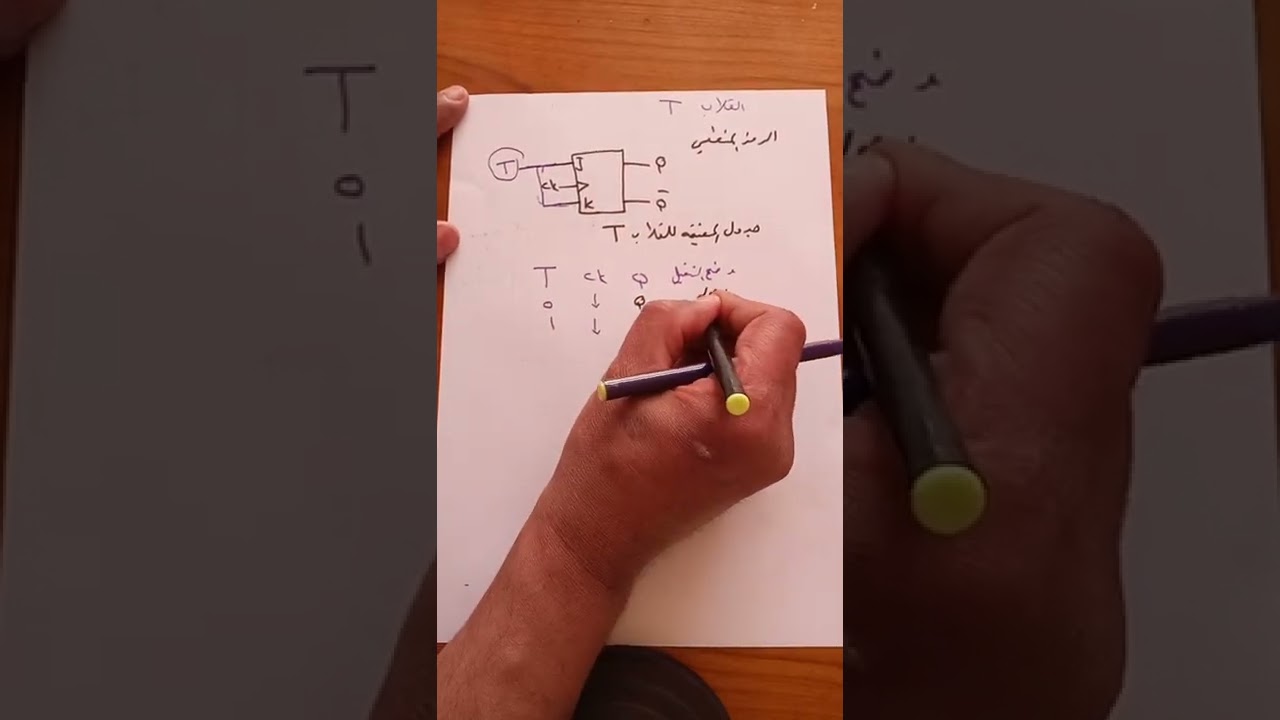 القلاب T
الرمز المنطقي
T J Q
ck
K Q̅
جدول الحقيقة للقلاب T
T ck Q وضع التشغيل
0 ↓ Q
1 ↓